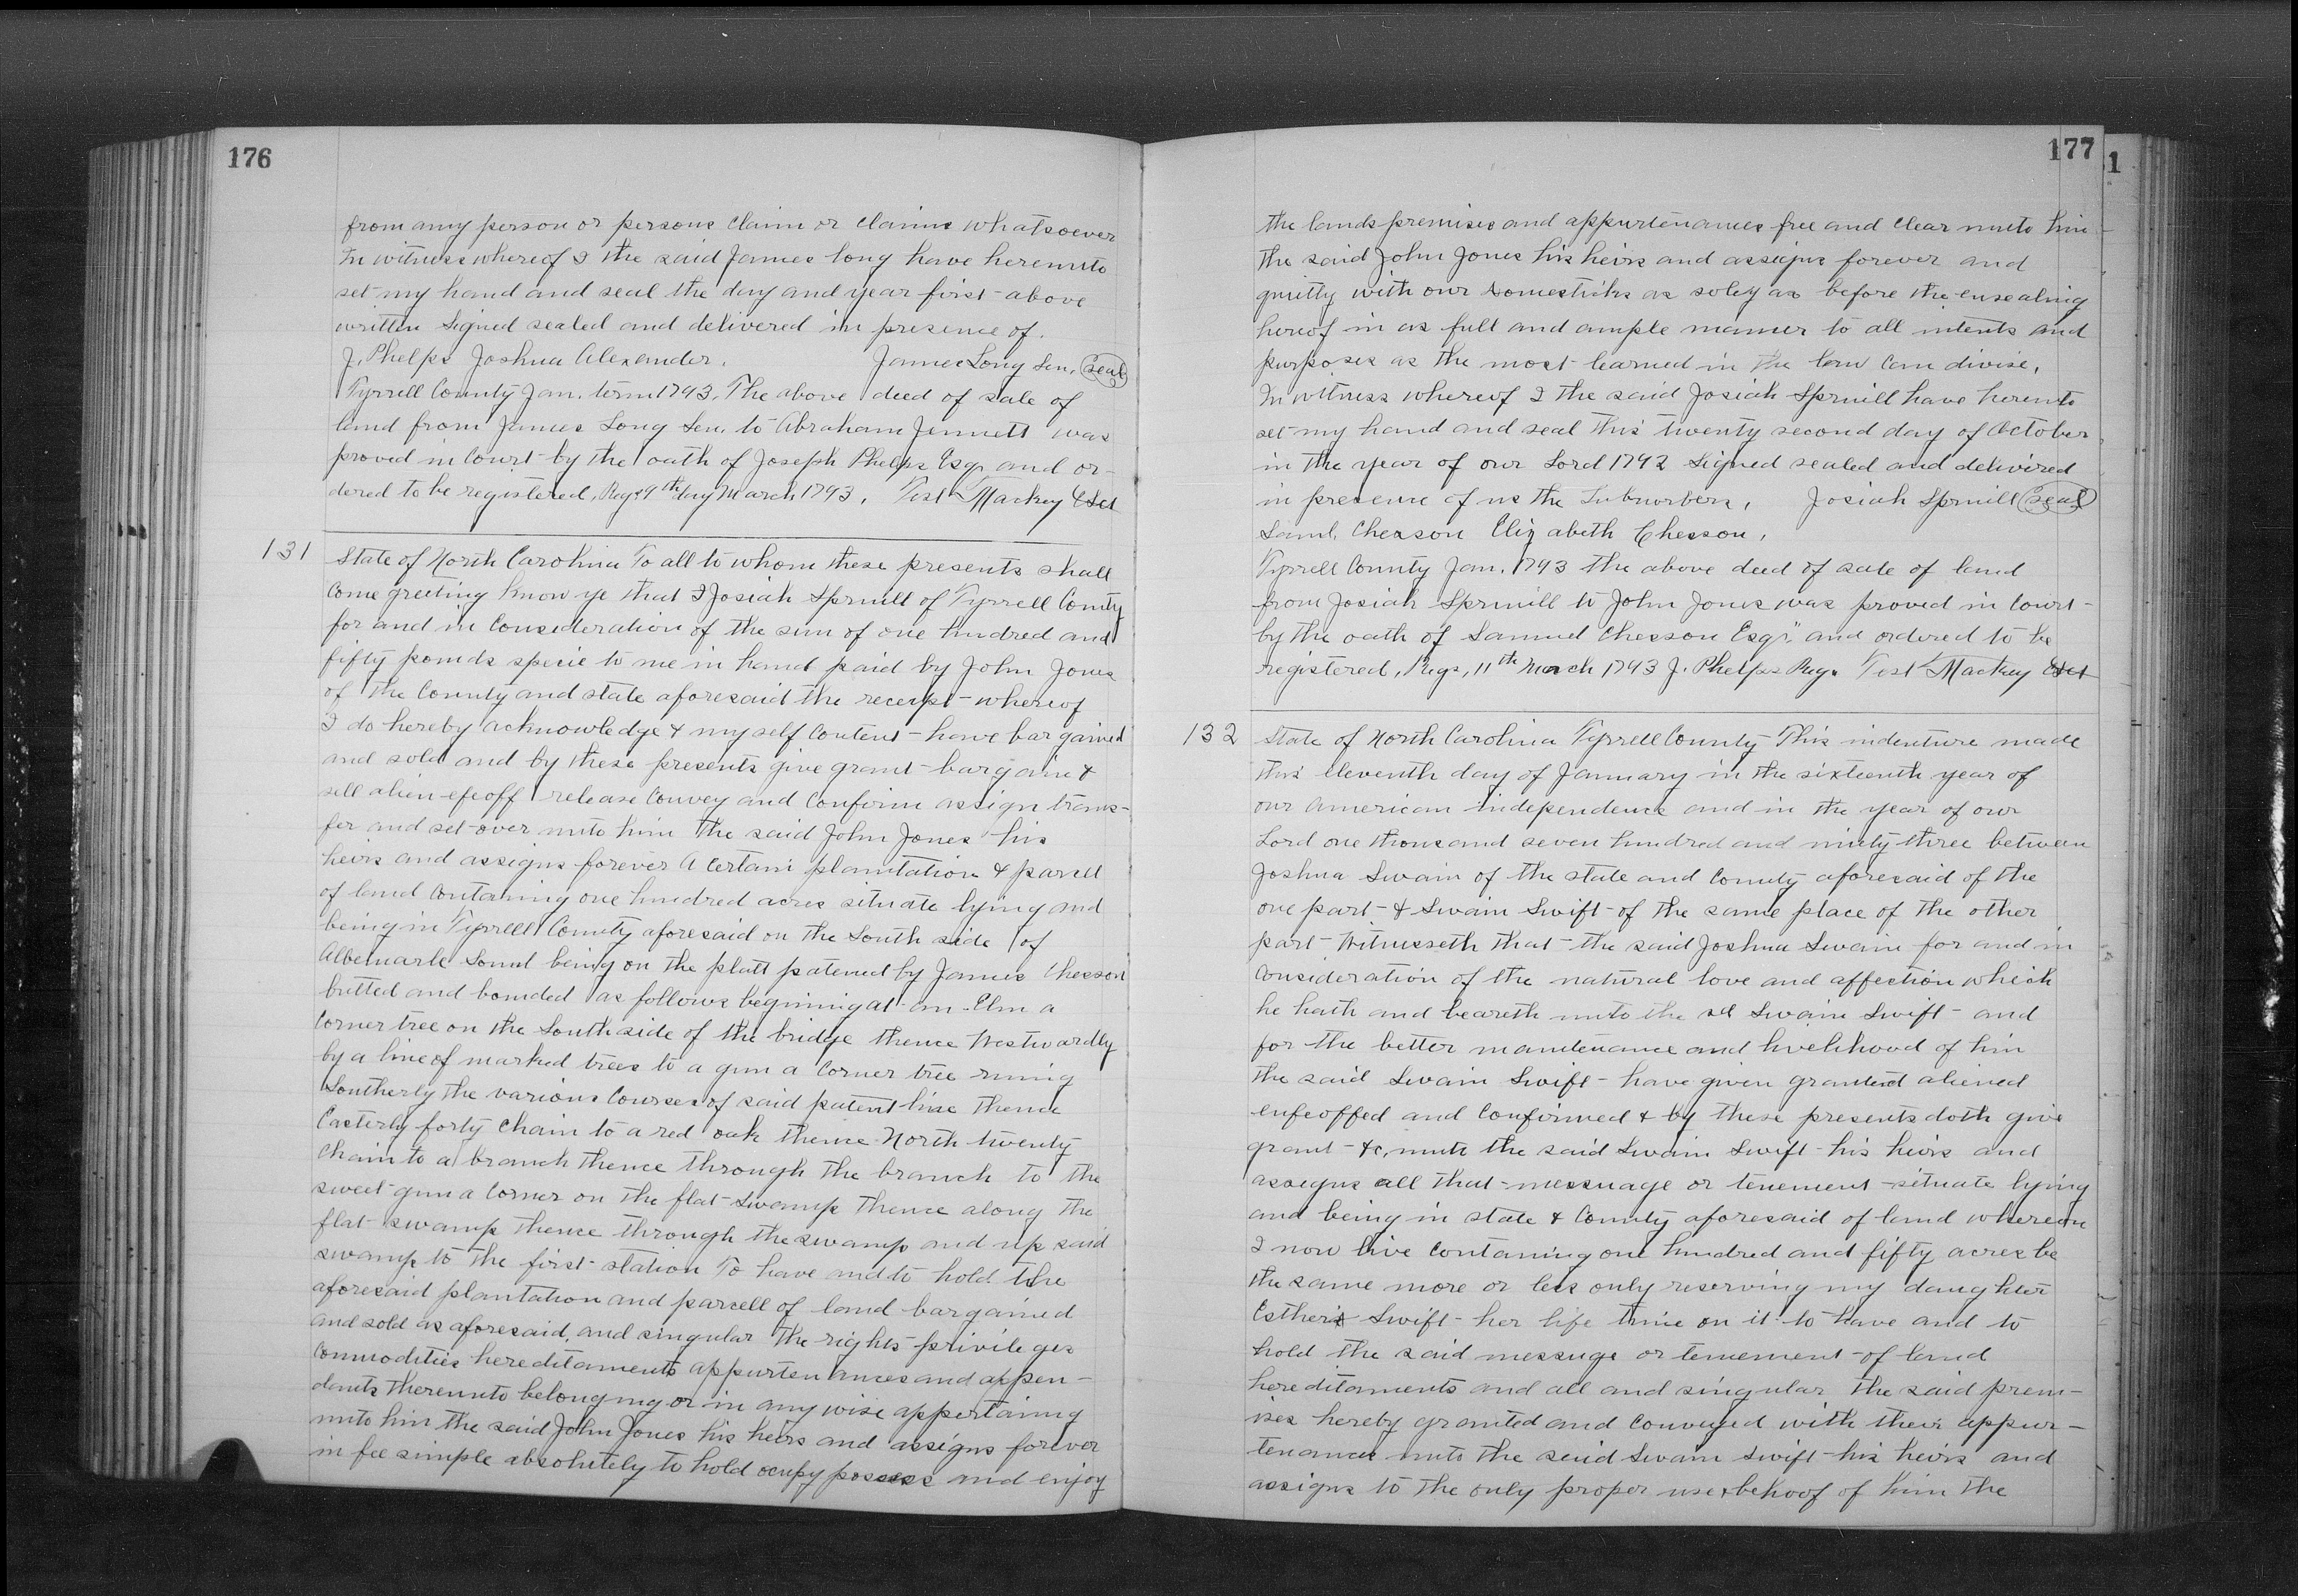 176
from any person or persons Claim or Claims whatsoever
In witness whereof I the said James long have hereunto
set my hand and seal the day and year first above
written Signed sealed and delivered in presence of.
J. Phelps Joshua Alexander. James Long Sen. Seal
Tyrrell County Jan. term 1793. The above deed of sale of
land from James Long Sen. to Abraham Jennett was
proved in Court by the oath of Joseph Phelps Esqr and or-
dered to be registered, Reg. 9th day March 1793. Test Mackey
131
State of North Carolina To all to whom these presents shall
Come greeting Know ye that I Josiah Spruill of Tyrrell County
for and in Consideration of the sum of one hundred and
fifty pounds specie to me in hand paid by John Jones
of the County and state aforesaid the receipt whereof
I do hereby acknowledge & myself Content have bargained
and sold and by these presents give grant bargain &
sell alien efeoff release Convey and Confirm assign trans-
fer and set over unto him the said John Jones his
heirs and assigns forever A Certain plantation & parcell
of land Contaning one hundred acres situate lying and
being in Tyrrell County aforesaid on the South side of
Albemarle Sound being on the platt patened by James Chesson
butted and bounded as follows beginnig at an Elm a
Corner tree on the South side of the bridge thence Westwardly
by a line of marked trees to a gum a Corner tree runing
Southerly the various Courses of said patent line thence
Easterly forty Chain to a red oak thence North twenty
Chain to a branch thence through the branch to the
sweet gum a Corner on the flat Swamp thence along the
flat swamp thence through the swamp and up said
swamp to the first station To have and to hold the
aforesaid plantation and parcell of land bargained
and sold as aforesaid, and singular the rights privileges
Commodities hereditaments appurtenances and appen-
dants thereunto belonging or in any wise appertaining
unto him the said John Jones his heirs and assigns forever
in fee simple absolutely to hold ocupy possess and enjoy
177
the lands premises and appurtenances free and Clear unto him
the said John Jones his heirs and assigns forever and
quitty with our domesticks as soley as before the ensealing
hereof in as full and ample manner to all intents and
purposes as the most learned in the law Can divise,
In witness whereof I the said Josiah Spruill have hereunto
set my hand and seal this twenty second day of October
in the year of our Lord 1792 Signed sealed and delivired
in presence of us the Subscribers, Josiah Spruill Seal
Saml. Chesson Elizabeth Chesson,
Tyrrell County Jan. 1793 the above deed of sale of land
from Josiah Spruill to John Jones was proved in Court
by the oath of Samuel Chesson Esqr. and ordered to be
registered, Regs, 11th March 1793 J. Phelps Reg. Test Mackey
132
State of North Carolina Tyrrell County This indenture made
this eleventh day of January in the sixteenth year of
our American independence and in the year of our
Lord one thousand seven hundred and ninty three between
Joshua Swain of the state and County aforesaid of the
one part & Swain Swift of the same place of the other
part Witnesseth that the said Joshua Swain for and in
Consideration of the natural love and affection which
he hath and beareth unto the sd Swain Swift and
for the better maintenance and livelihood of him
the said Swain Swift have given granted aliened
enfeoffed and Confirmed & by these presents doth give
grant &c, unto the said Swain Swift his heirs and
assigns all that messuage or tenement situate lying
and being in state & County aforesaid of land whereon
I now live Contaning one hundred and fifty acres be
the same more or less only reserving my daughter
Esther's Swift her life time on it to have and to
hold the said messuge or tenement of land
hereditaments and all and singular the said prem-
ises hereby granted and Conveyed with their appur-
tenances unto the said Swain Swift his heirs and
assigns to the only proper use & behoof of him the